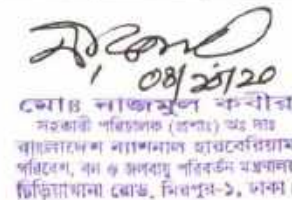 ০৪/১১/২০
মোঃ নাজমুল কবীর
সহকারী পরিচালক (প্রশাঃ) অঃ দাঃ
বাংলাদেশ ন্যাশনাল হারবেরিয়াম
পরিবেশ, বন ও জলবায়ু পরিবর্তন মন্ত্রণালয়
চিড়িয়াখানা রোড, মিরপুর-১, ঢাকা।